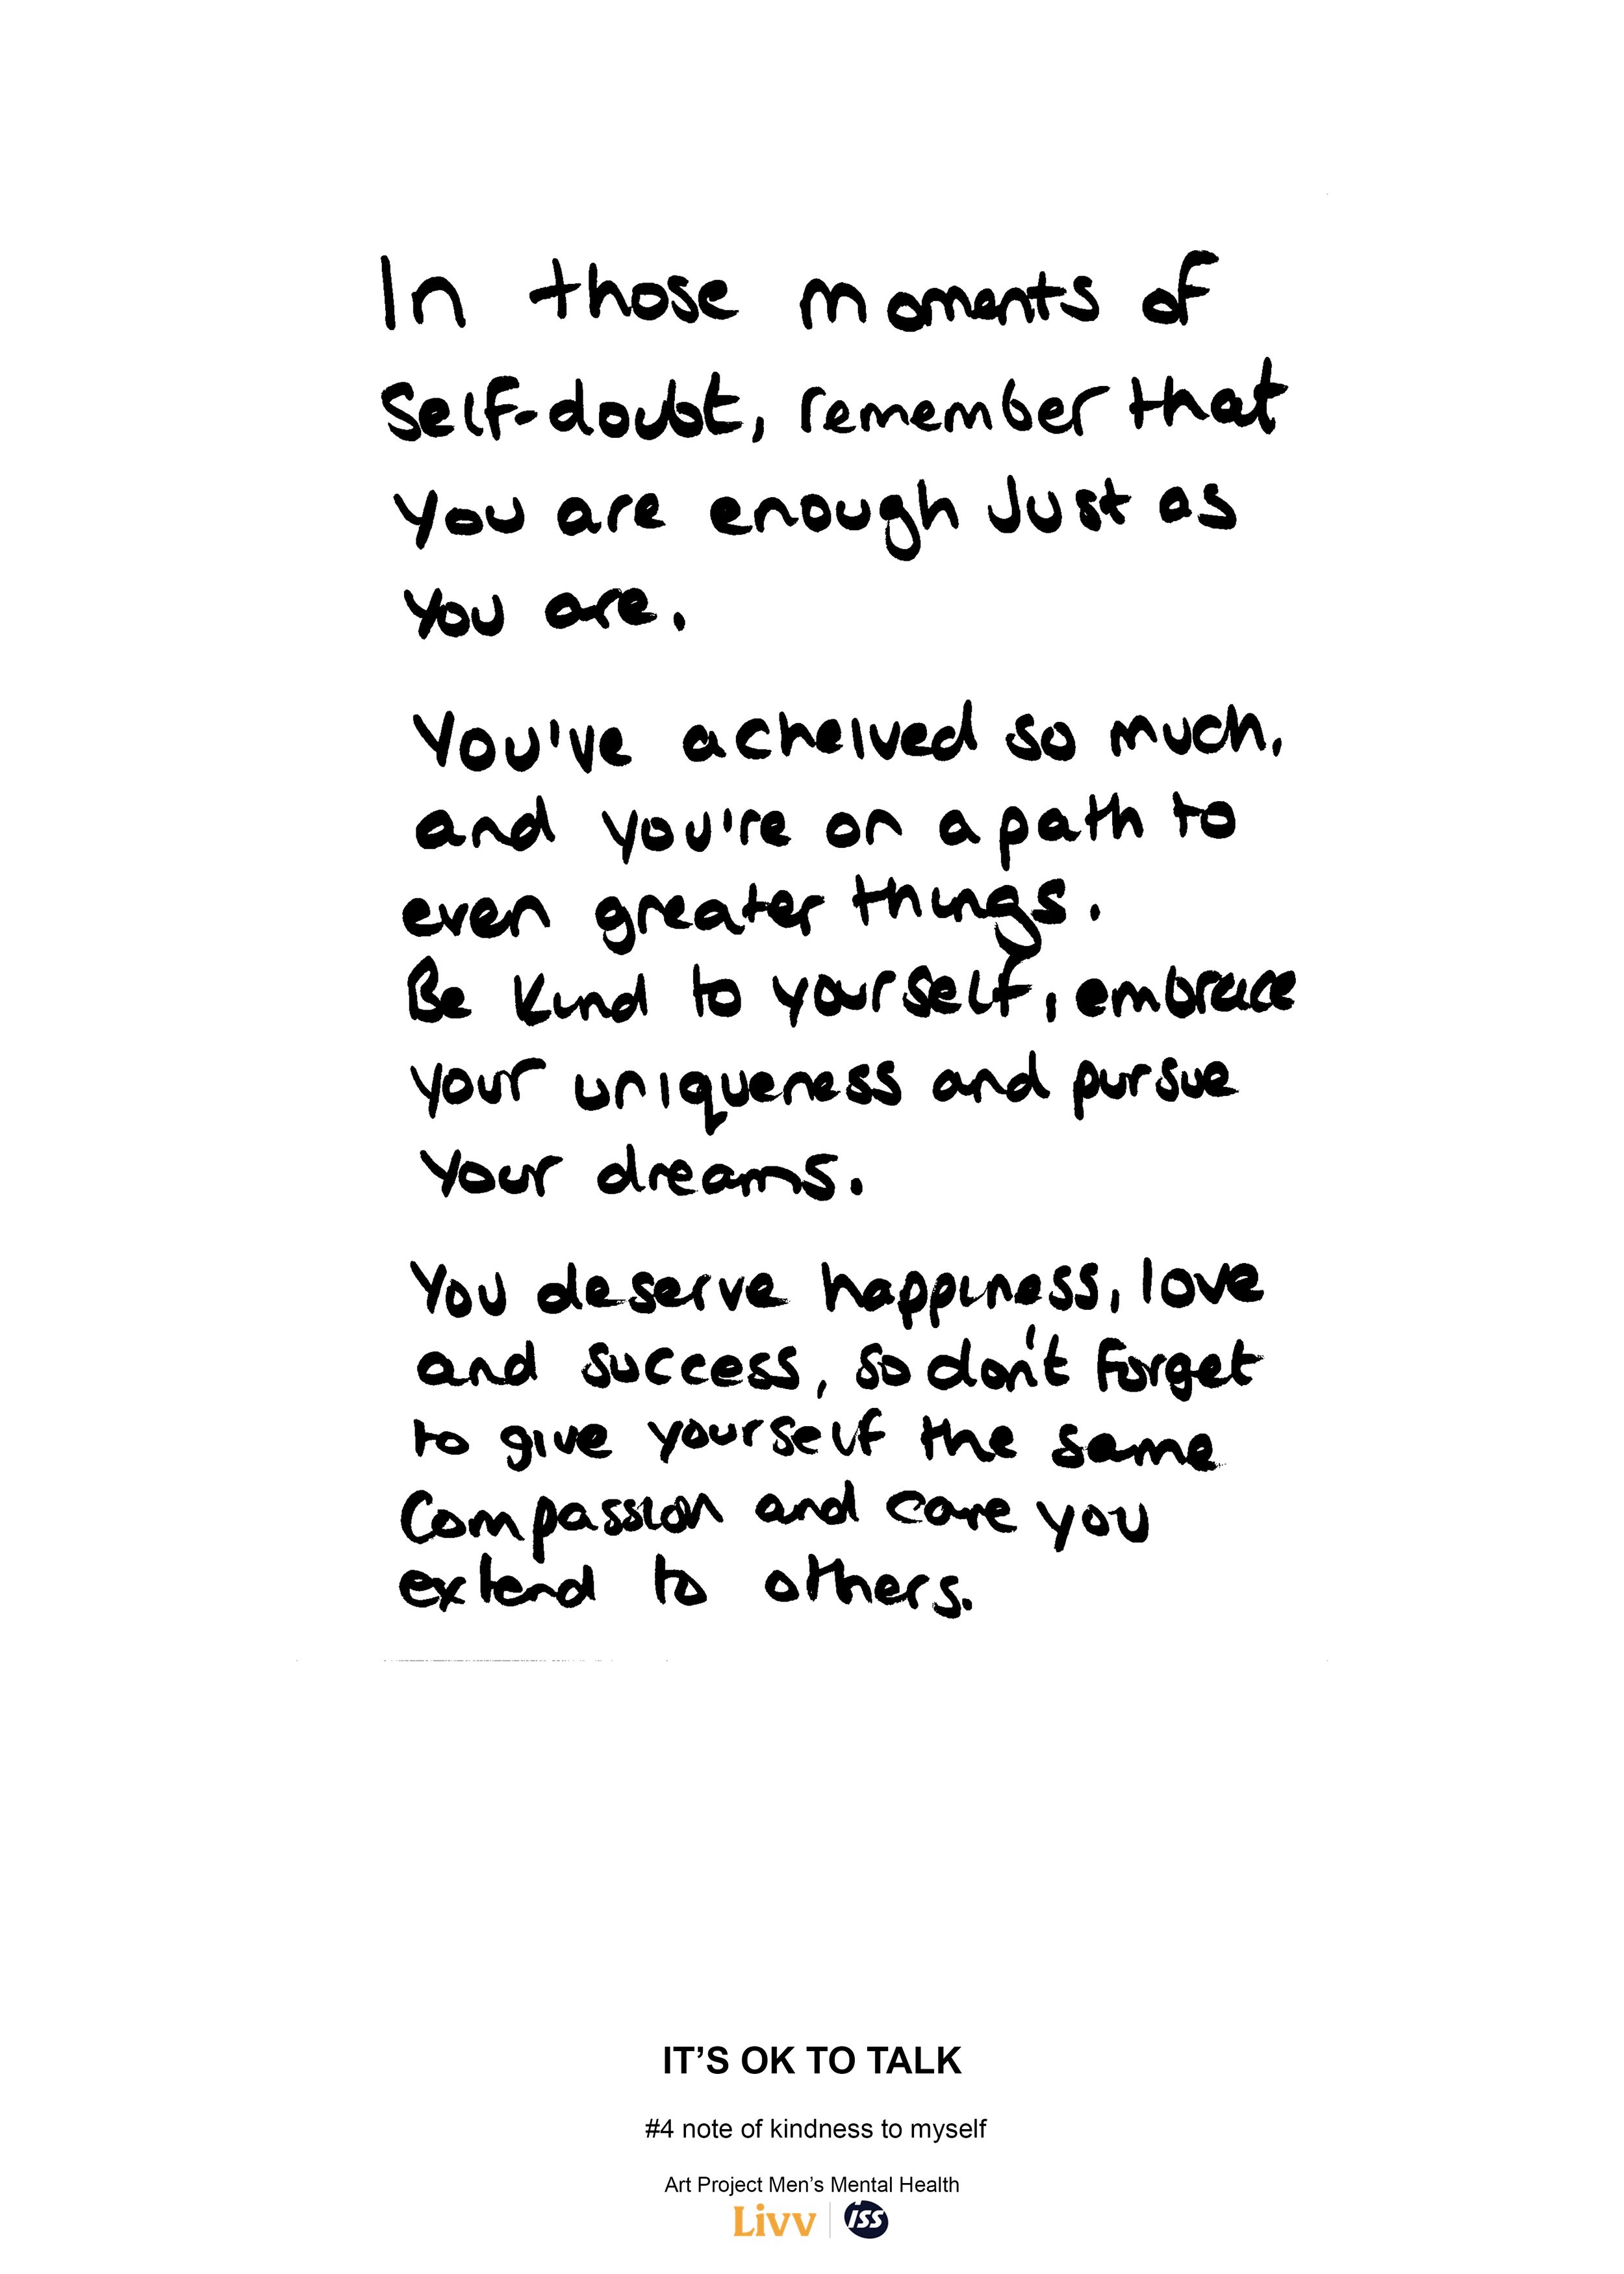 In those moments of
Self-doubt, remember that
you are enough Just as
you are.
You've acheived so much,
and you're on a path to
even greater things.
Be Kind to yourself, embrace
your uniqueness and pursue
your dreams.
You deserve happiness, love
and success, so don't forget
to give yourself the same
Compassion and care you
extend to others.
IT’S OK TO TALK
#4 note of kindness to myself
Art Project Men’s Mental Health
Livv ISS